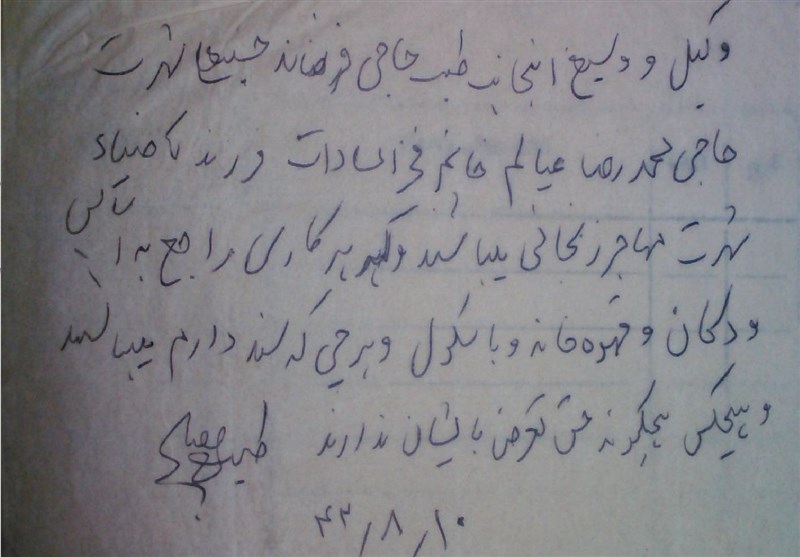 وکیل و وصی اینجانب طیب حاجی رضائی شهرت
حاجی محمد رضا عیالم خانم فخرالسادات فرزند آقا ضیاء
شهرت مهاجر زنجانی میباشند و هر کاری راجع به
و دکان و قهوه خانه و باسکول و هرچی که سند دارم میباشند
و هیچکس هیچگونه حق تعرض بایشان ندارند طیب
۴۲٫۸٫۱۰